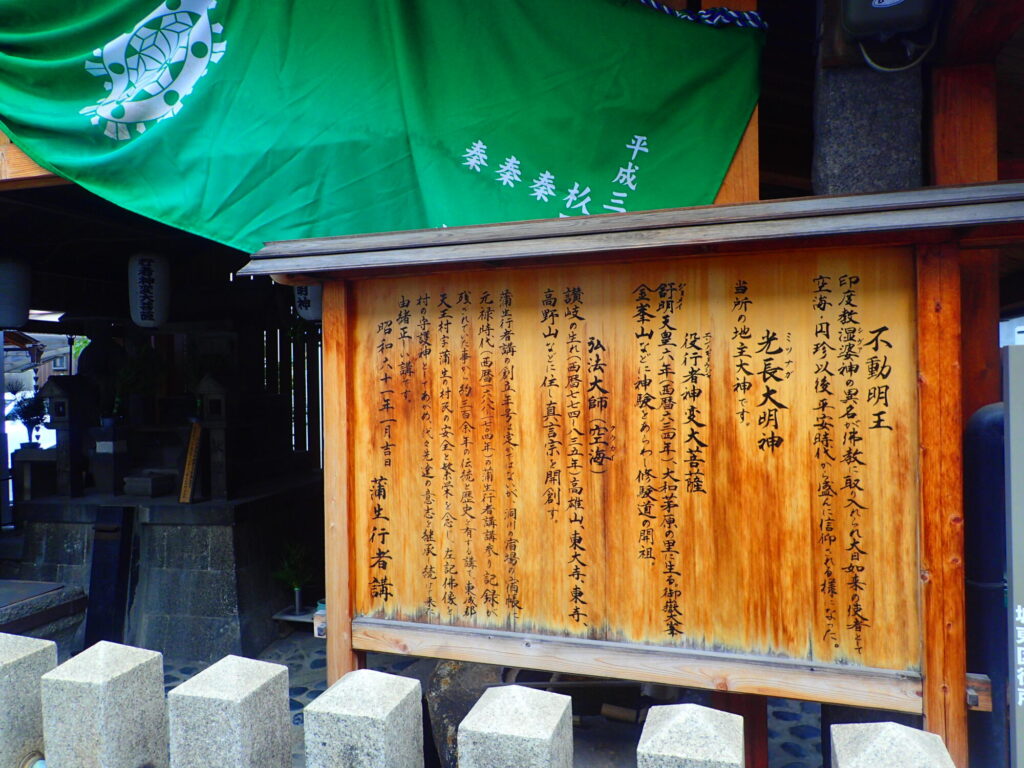 平成三
杦
秦
秦
秦
行者神変大菩薩
不動明王
印度教湿婆神の異名が佛教に取り入れられ大日如来の使者として
シバガミ
空海、円珍以後平安時代から盛んに信仰される様になった。
光長大明神
ミツナガ
当所の地主大神です。
役行者神変大菩薩
舒明天皇六年(西暦六三四年)大和茅原の里に生る。御嶽大峯
金峯山などに神験をあらわし修験道の開祖。
弘法大師(空海)
讃岐の生れ(西暦七七四-八三五年)高雄山、東大寺、東寺、
高野山などに住し真言宗を開創す。
蒲生行者講の創立年号は定かではないが、洞川の宿場の宿帳に
元禄時代(西暦一六八八-七〇四年)の蒲生行者講講参り記録が
残されていた事から約三百余年の伝統と歴史を有する講で東成郡
天王村字蒲生の村民の安全と繁栄を念じ、左記佛像を
村の守護神としてあがめ、代々先達の意志を継承し続けて来た
由緒正しい講です。
昭和六十一年一月吉日
蒲生行者講